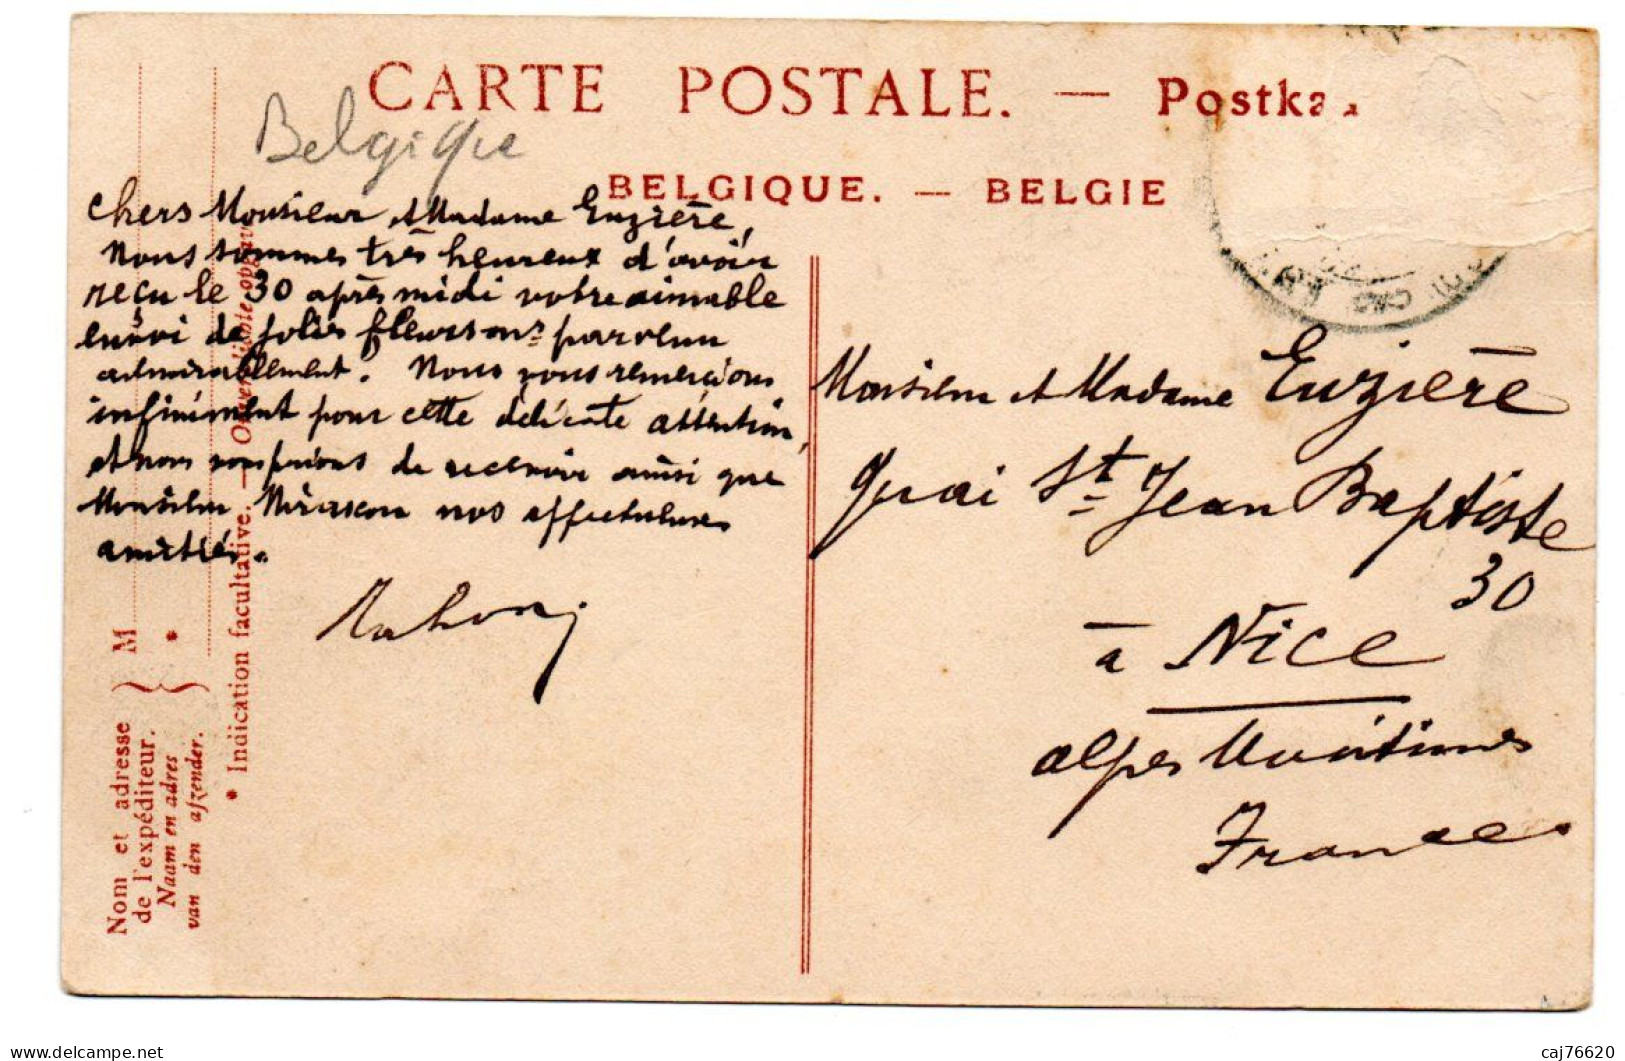 CARTE POSTALE. — Postka
Belgique
BELGIQUE. — BELGIE
Chers Monsieur et Madame Euzière,
Nous sommes très heureux d'avoir
reçu le 30 après midi votre aimable
envoi de jolies fleurs parvenu
admirablement. Nous vous remercions
infiniment pour cette délicate attention,
et nous vous prions de recevoir ainsi que
Monsieur nos affectueuses
amitiés.
Monsieur et Madame Euzière
Quai St Jean Baptiste
30
à Nice
Alpes Maritimes
France
Nom et adresse
de l'expéditeur.
Naam en adres
van den afzender.
} M
*
* Indication facultative. —
caj76620
www.delcampe.net